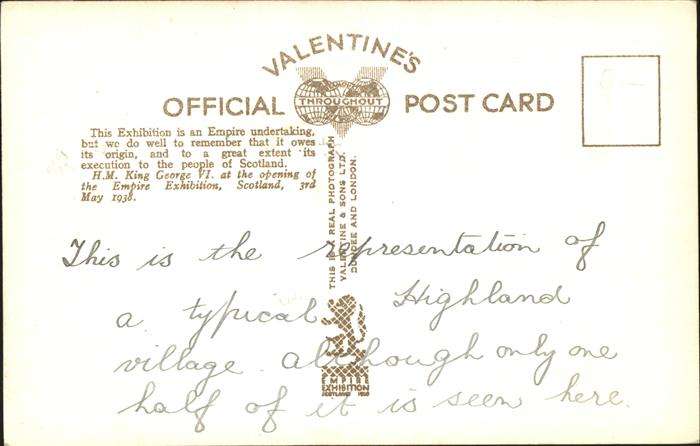 VALENTINE'S
OFFICIAL THROUGHOUT POST CARD
This Exhibition is an Empire undertaking,
but we do well to remember that it owes
its origin, and to a great extent its
execution to the people of Scotland.
H.M. King George VI. at the opening of
the Empire Exhibition, Scotland, 3rd
May 1938.
THIS IS A REAL PHOTOGRAPH
VALENTINE & SONS LTD.
DUNDEE AND LONDON.
This is the representation of
a typical Highland
village. although only one
half of it is seen here.
EMPIRE
EXHIBITION
SCOTLAND 1938